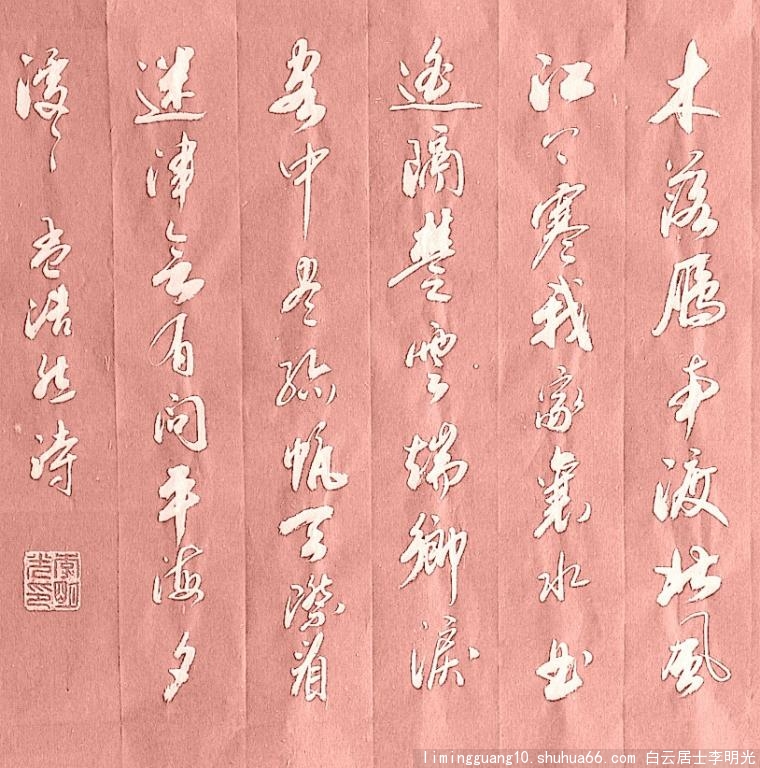 木落鴈南渡北風
江上寒我家襄水曲
遙隔楚雲端鄉淚
客中盡孤帆天際看
迷津欲有問平海夕
漫漫 孟浩然詩
李明光印
limingguang10.shuhua66.com 白云居士李明光